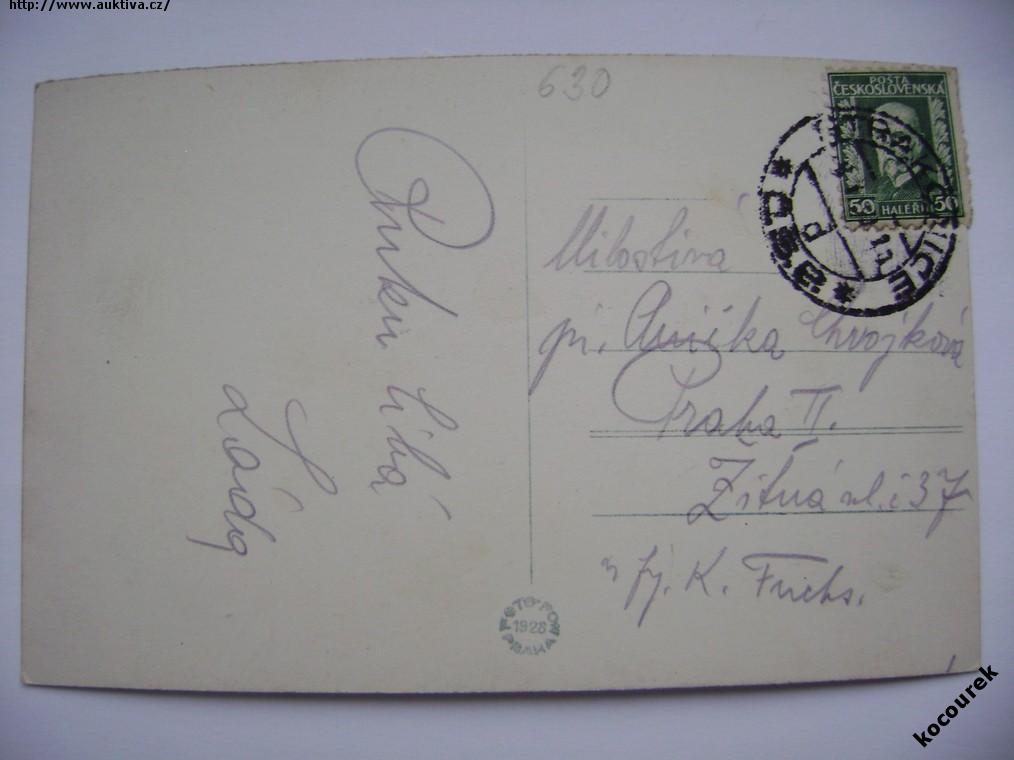 http://www.auktiva.cz/
630
POŠTA
ČESKOSLOVENSKÁ
50 HALÉŘŮ 50
líbá
Láďa
Milostivá
Anička Chvojková
Praha II.
Žitná ul. č 37
u fy. K. Fuchs.
FOTO-FON
1928
PRAHA
kocourek